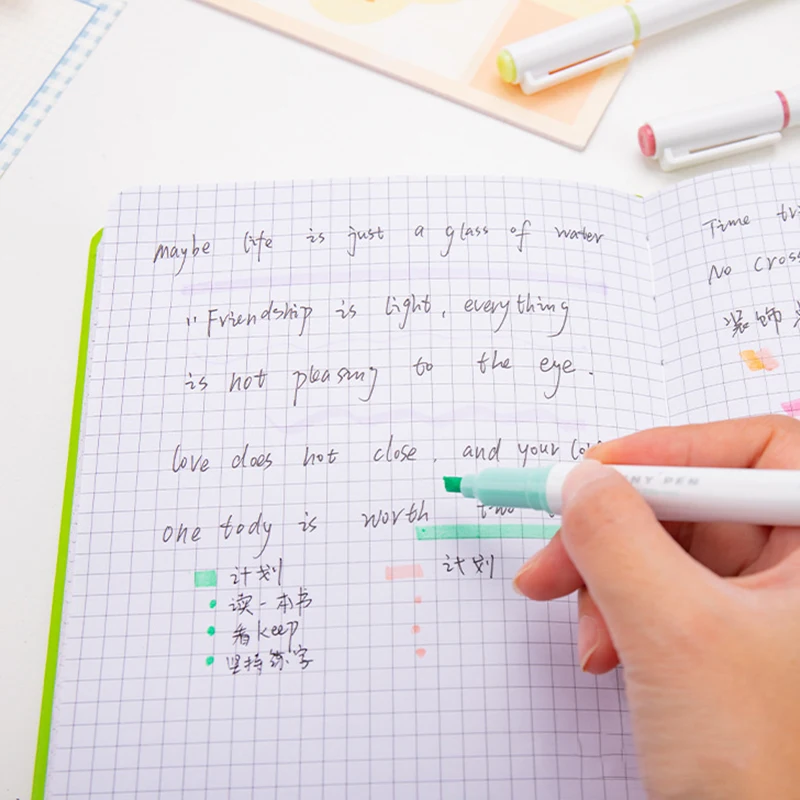 maybe life is just a glass of water
"Friendship is light, everything
is not pleasing to the eye.
love does not close, and your
one tody is worth two
计划
读一本书
看keep
坚持练字
计划
Time
No cross
装饰
PEN